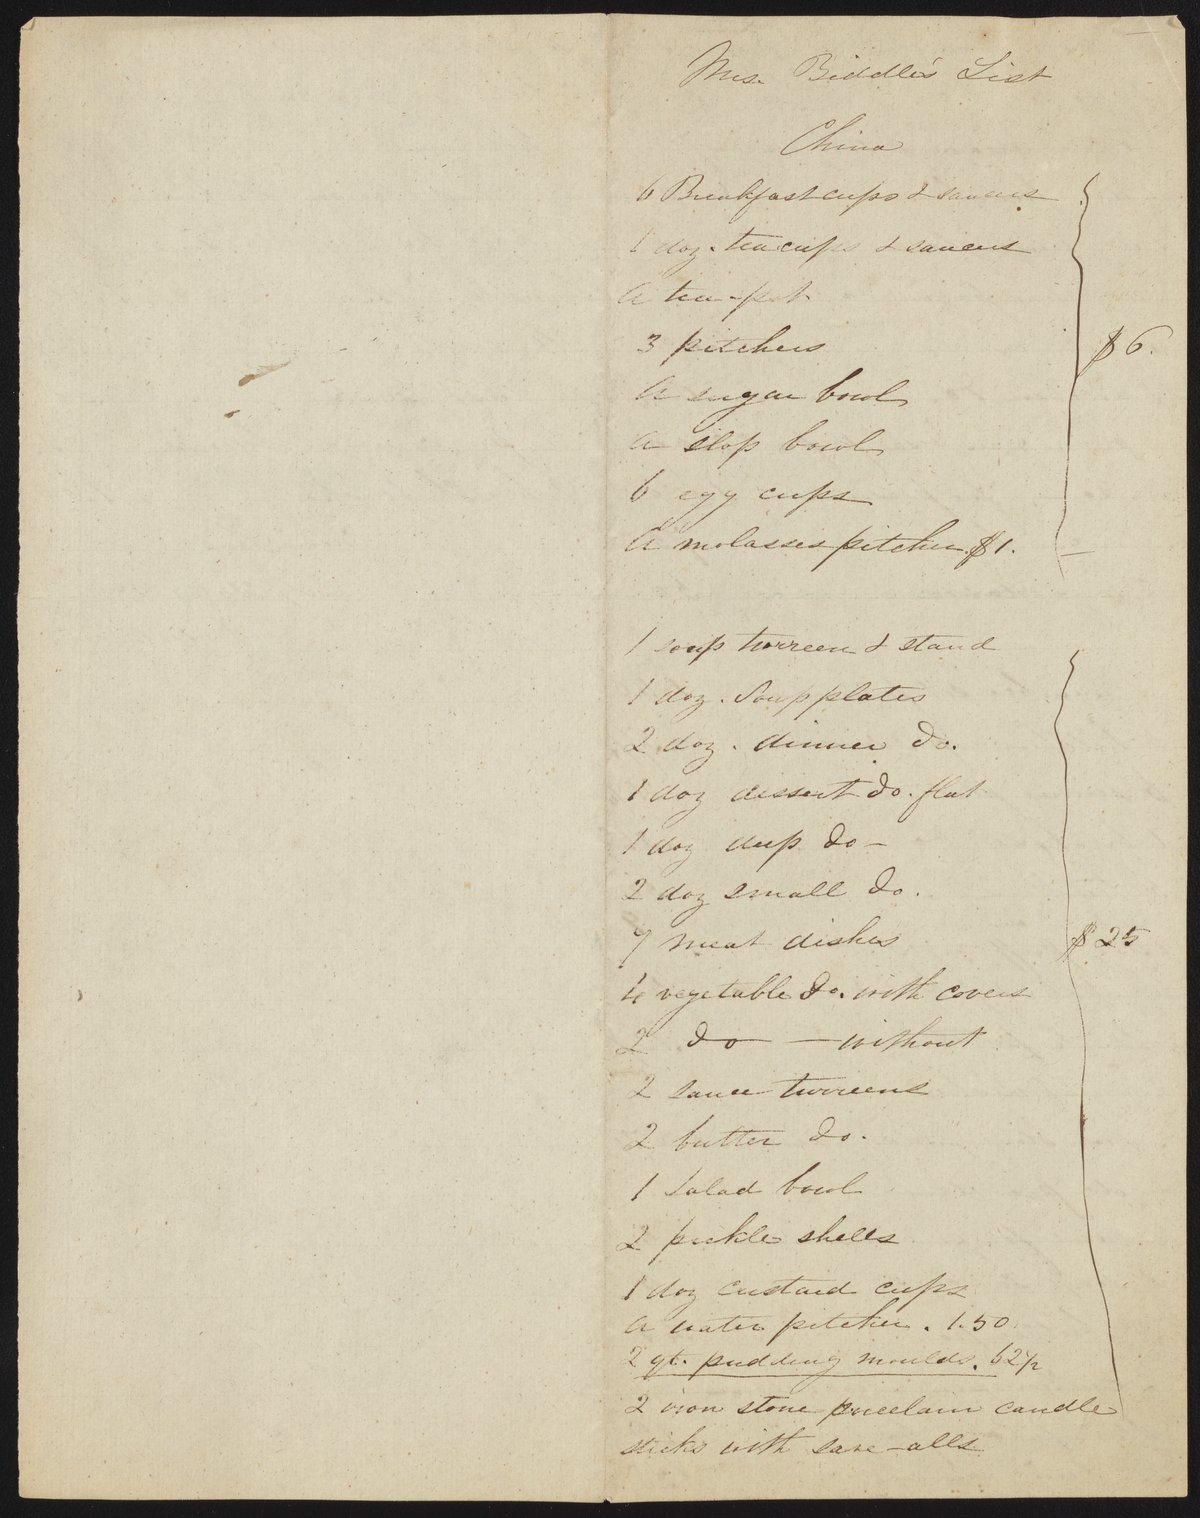 Mrs. Biddle's List
China
6 Breakfast cups & saucers
1 doz. tea cups & saucers
A tea-pot
3 pitchers
A sugar bowl
A slop bowl
6 egg cups
A molasses pitcher. $1.
$6.
1 soup turreen & stand
1 doz. Soup plates
2 doz. dinner do.
1 doz dessert do. flat
1 doz deep do -
2 doz small do.
7 meat dishes
4 vegetable do. with covers
2 do — without
2 sauce turreens
2 butter do.
1 salad bowl
2 pickle shells
1 doz custard cups
A water pitcher. 1.50
2 qt. pudding moulds. 62½
2 iron stone porcelain candle
sticks with save-alls
$25